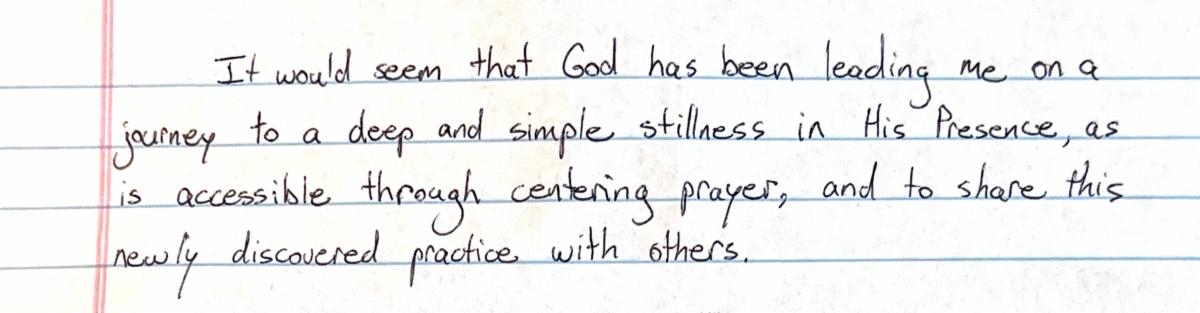 It would seem that God has been leading me on a
journey to a deep and simple stillness in His Presence, as
is accessible through centering prayer, and to share this
newly discovered practice with others.